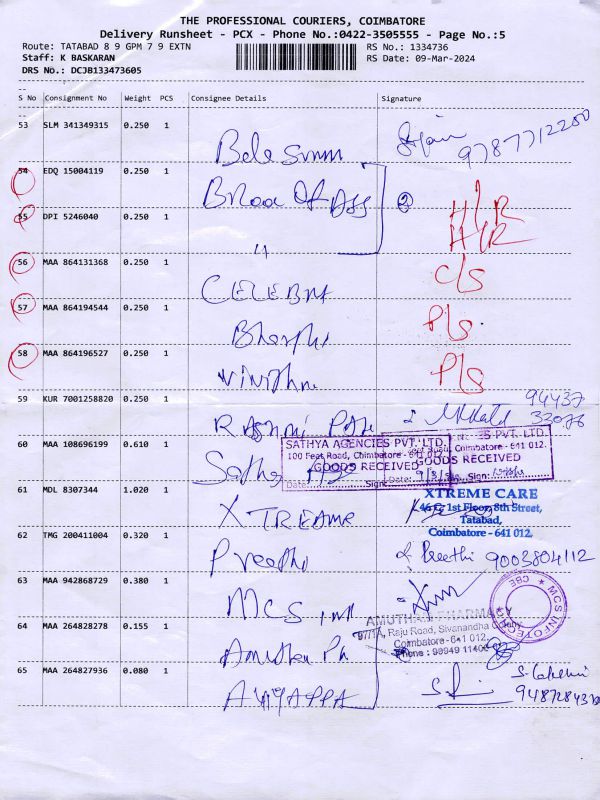 THE PROFESSIONAL COURIERS, COIMBATORE
Delivery Runsheet - PCX - Phone No.:0422-3505555 - Page No.:5
Route: TATABAD 8 9 GPM 7 9 EXTN
RS No.: 1334736
Staff: K BASKARAN
RS Date: 09-Mar-2024
DRS No.: DCJB133473605
S No Consignment No Weight PCS Consignee Details Signature
53 SLM 341349315 0.250 1
9787712200
54 EDQ 15004119 0.250 1
55 DPI 5246040 0.250 1
56 MAA 864131368 0.250 1
C/S
57 MAA 864194544 0.250 1
P/S
58 MAA 864196527 0.250 1
P/S
59 KUR 7001258820 0.250 1
94437
33076
60 MAA 108696199 0.610 1
SATHYA AGENCIES PVT. LTD.
100 Feet Road, Coimbatore
GOODS RECEIVED
Date: Sign
ES PVT. LTD.
Coimbatore - 641 012.
GOODS RECEIVED
Sign:
61 MDL 8307344 1.020 1
XTREAME
XTREME CARE
46 C, 1st Floor, 8th Street,
Tatabad,
Coimbatore - 641 012.
62 TMG 200411004 0.320 1
Preethi
Preethi 9003804112
63 MAA 942868729 0.380 1
MCS
MCS INFOTECH
CBE
64 MAA 264828278 0.155 1
AMUTHA PHARMACY
97/1A, Raju Road, Sivanandha Colony
Coimbatore-641 012.
Phone : 99949 11400
65 MAA 264827936 0.080 1
AYYAPPA